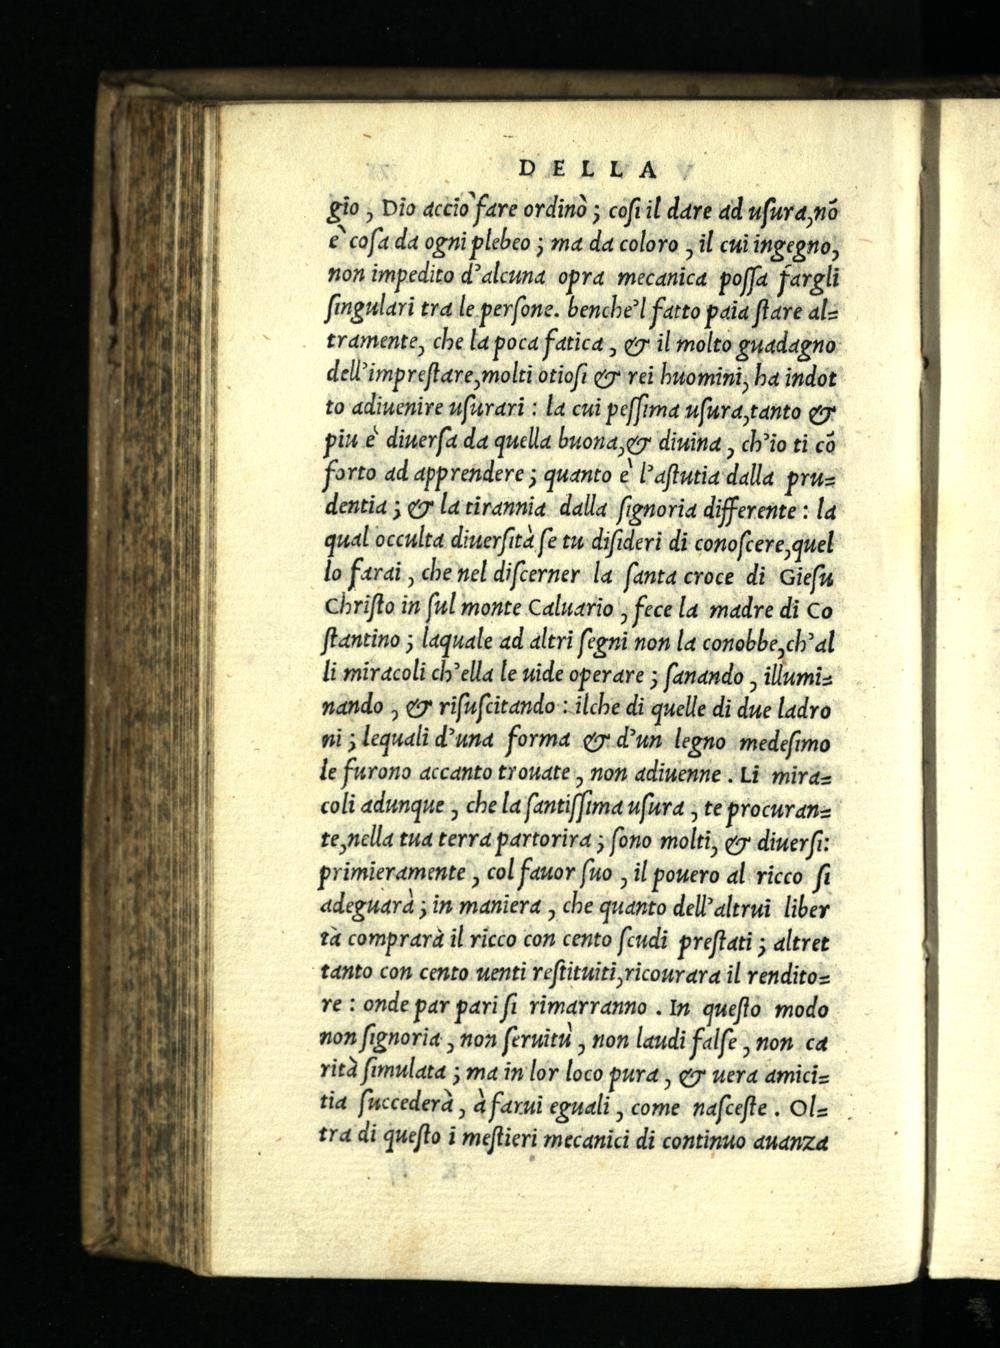 DELLA
gio, Dio acciò fare ordinò; coſi il dare ad uſura, nō
è coſa da ogni plebeo; ma da coloro, il cui ingegno,
non impedito d'alcuna opra mecanica poſſa fargli
ſingulari tra le perſone. benche'l fatto paia ſtare al=
tramente, che la poca fatica, & il molto guadagno
dell'impreſtare, molti otioſi & rei huomini, ha indot
to adiuenire uſurari: la cui peſſima uſura, tanto &
piu è diuerſa da quella buona, & diuina, ch'io ti cō
forto ad apprendere; quanto è l'aſtutia dalla pru=
dentia; & la tirannia dalla ſignoria differente: la
qual occulta diuerſità ſe tu diſideri di conoſcere, quel
lo farai, che nel diſcerner la ſanta croce di Gieſu
Chriſto in ſul monte Caluario, fece la madre di Co
ſtantino; laquale ad altri ſegni non la conobbe, ch'al
li miracoli ch'ella le uide operare; ſanando, illumi=
nando, & riſuſcitando: ilche di quelle di due ladro
ni; lequali d'una forma & d'un legno medeſimo
le furono accanto trouate, non adiuenne. Li mira=
coli adunque, che la ſantiſſima uſura, te procuran=
te, nella tua terra partorira; ſono molti, & diuerſi:
primieramente, col fauor ſuo, il pouero al ricco ſi
adeguarà; in maniera, che quanto dell'altrui liber
tà comprarà il ricco con cento ſcudi preſtati; altret
tanto con cento uenti reſtituiti, ricourara il rendito=
re: onde par pari ſi rimarranno. In queſto modo
non ſignoria, non ſeruitù, non laudi falſe, non ca
rità ſimulata; ma in lor loco pura, & uera amici=
tia ſuccederà, à farui eguali, come naſceſte. Ol=
tra di queſto i meſtieri mecanici di continuo auanza